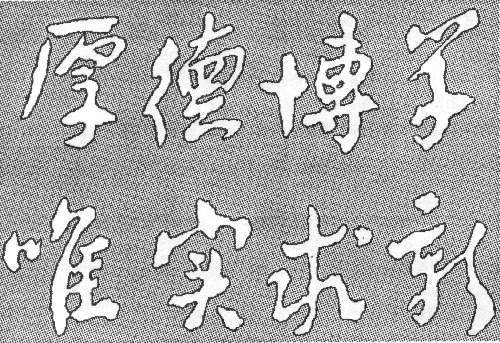 厚德博学
唯实求新